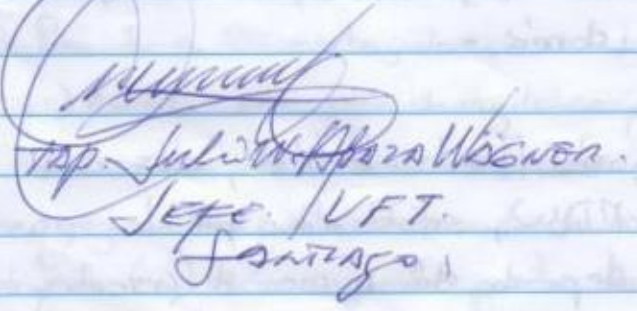 Top. Julio W. Apaza Wagner.
Jefe. / UFT.
Santiago.